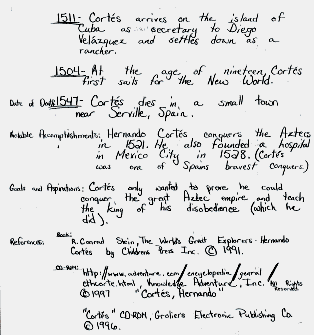 1511- Cortés arrives on the island of
Cuba as secretary to Diego
Velázquez and settles down as a
rancher.
1504- At the age of nineteen, Cortés
first sails for the New World.
Date of Death: 1547- Cortés dies in a small town
near Serville, Spain.
Notable Accomplishments: Hernando Cortés conquers the Aztecs
in 1521. He also founded a hospital
in Mexico City in 1528. (Cortés
was one of Spains bravest conquers.)
Goals and Aspirations: Cortés only wanted to prove he could
conquer the great Aztec empire and teach
the king of his disobedience (which he
did).
References: Book:
R. Conrad Stein, The World's Great Explorers: Hernando
Cortés by Childrens Press Inc. © 1991.
CD-ROM:
http://www.adventure.com/encyclopedia/general
/fhcorte.html, Knowledge Adventure, Inc. All Rights Reserved
© 1997 "Cortés, Hernando"
"Cortés" CD-ROM, Groliers Electronic Publishing Co.
© 1996.